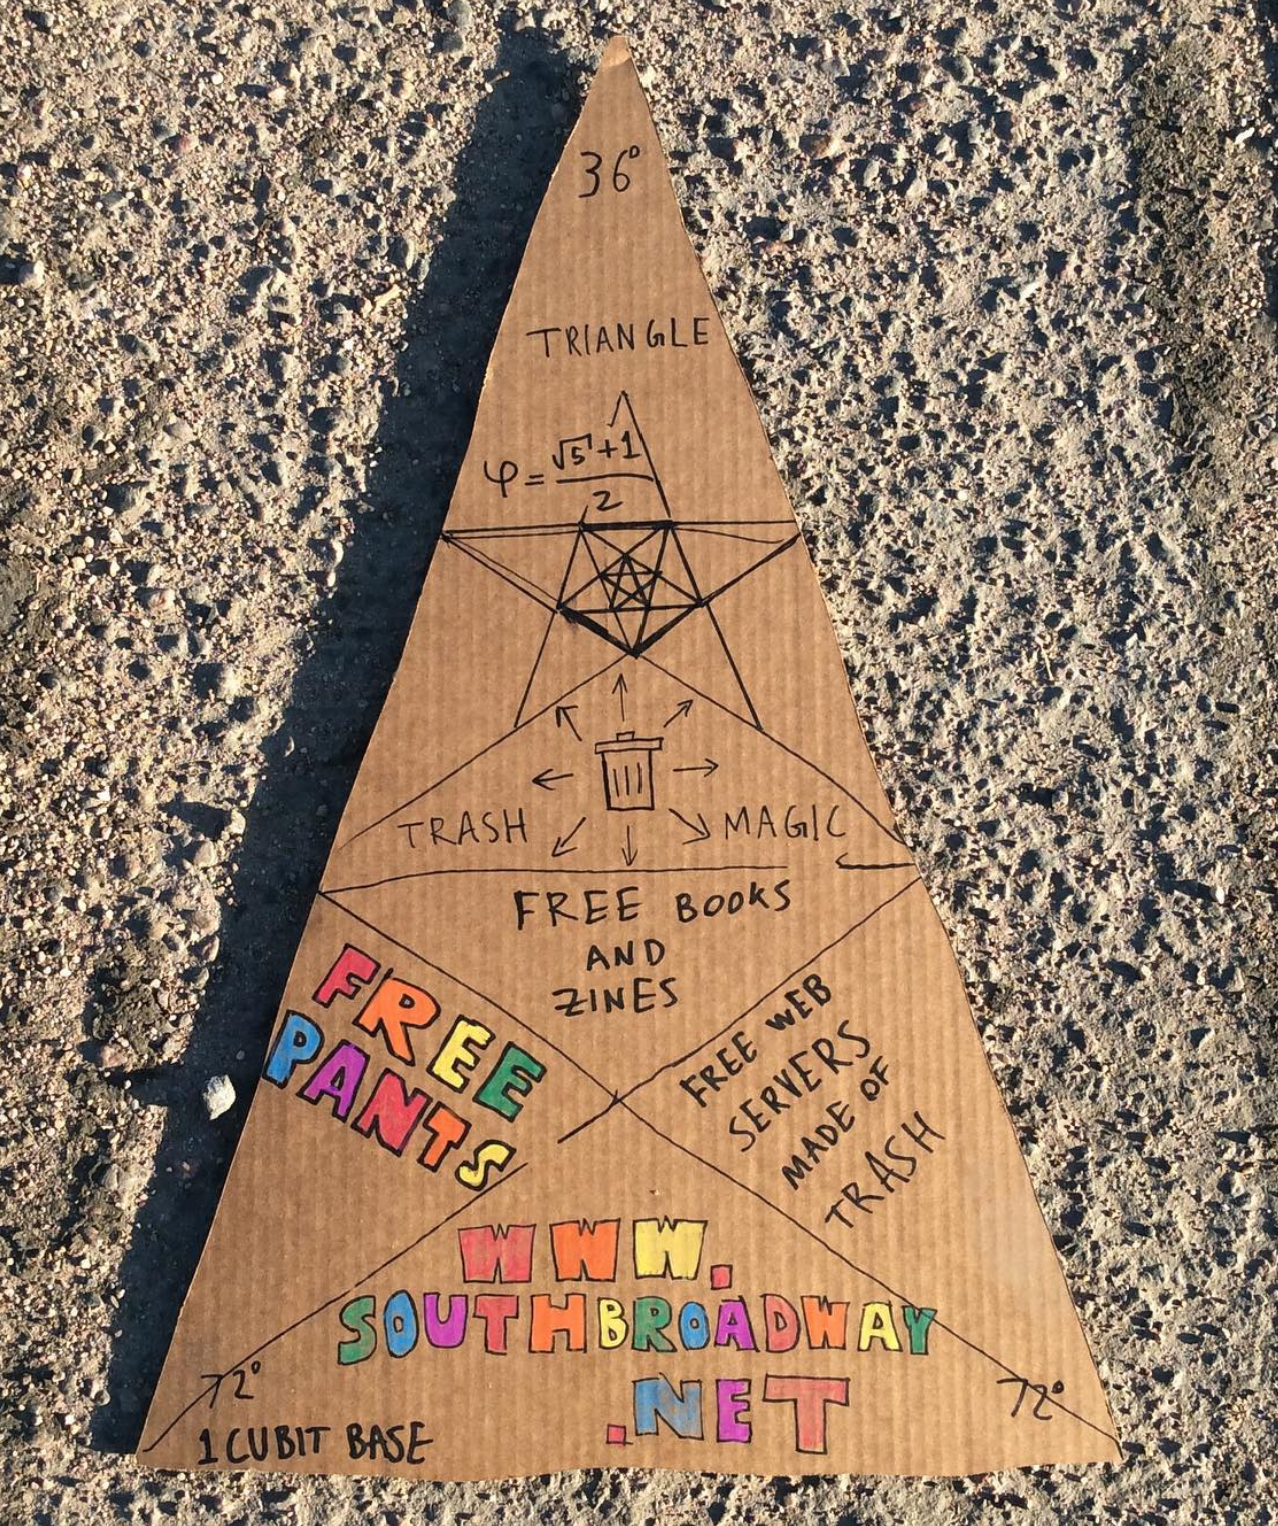 36°
TRIANGLE
φ = (√5+1)/2
TRASH MAGIC
FREE BOOKS
AND
ZINES
FREE
PANTS
FREE WEB
SERVERS
MADE OF
TRASH
WWW.
SOUTHBROADWAY
.NET
72°
72°
1 CUBIT BASE